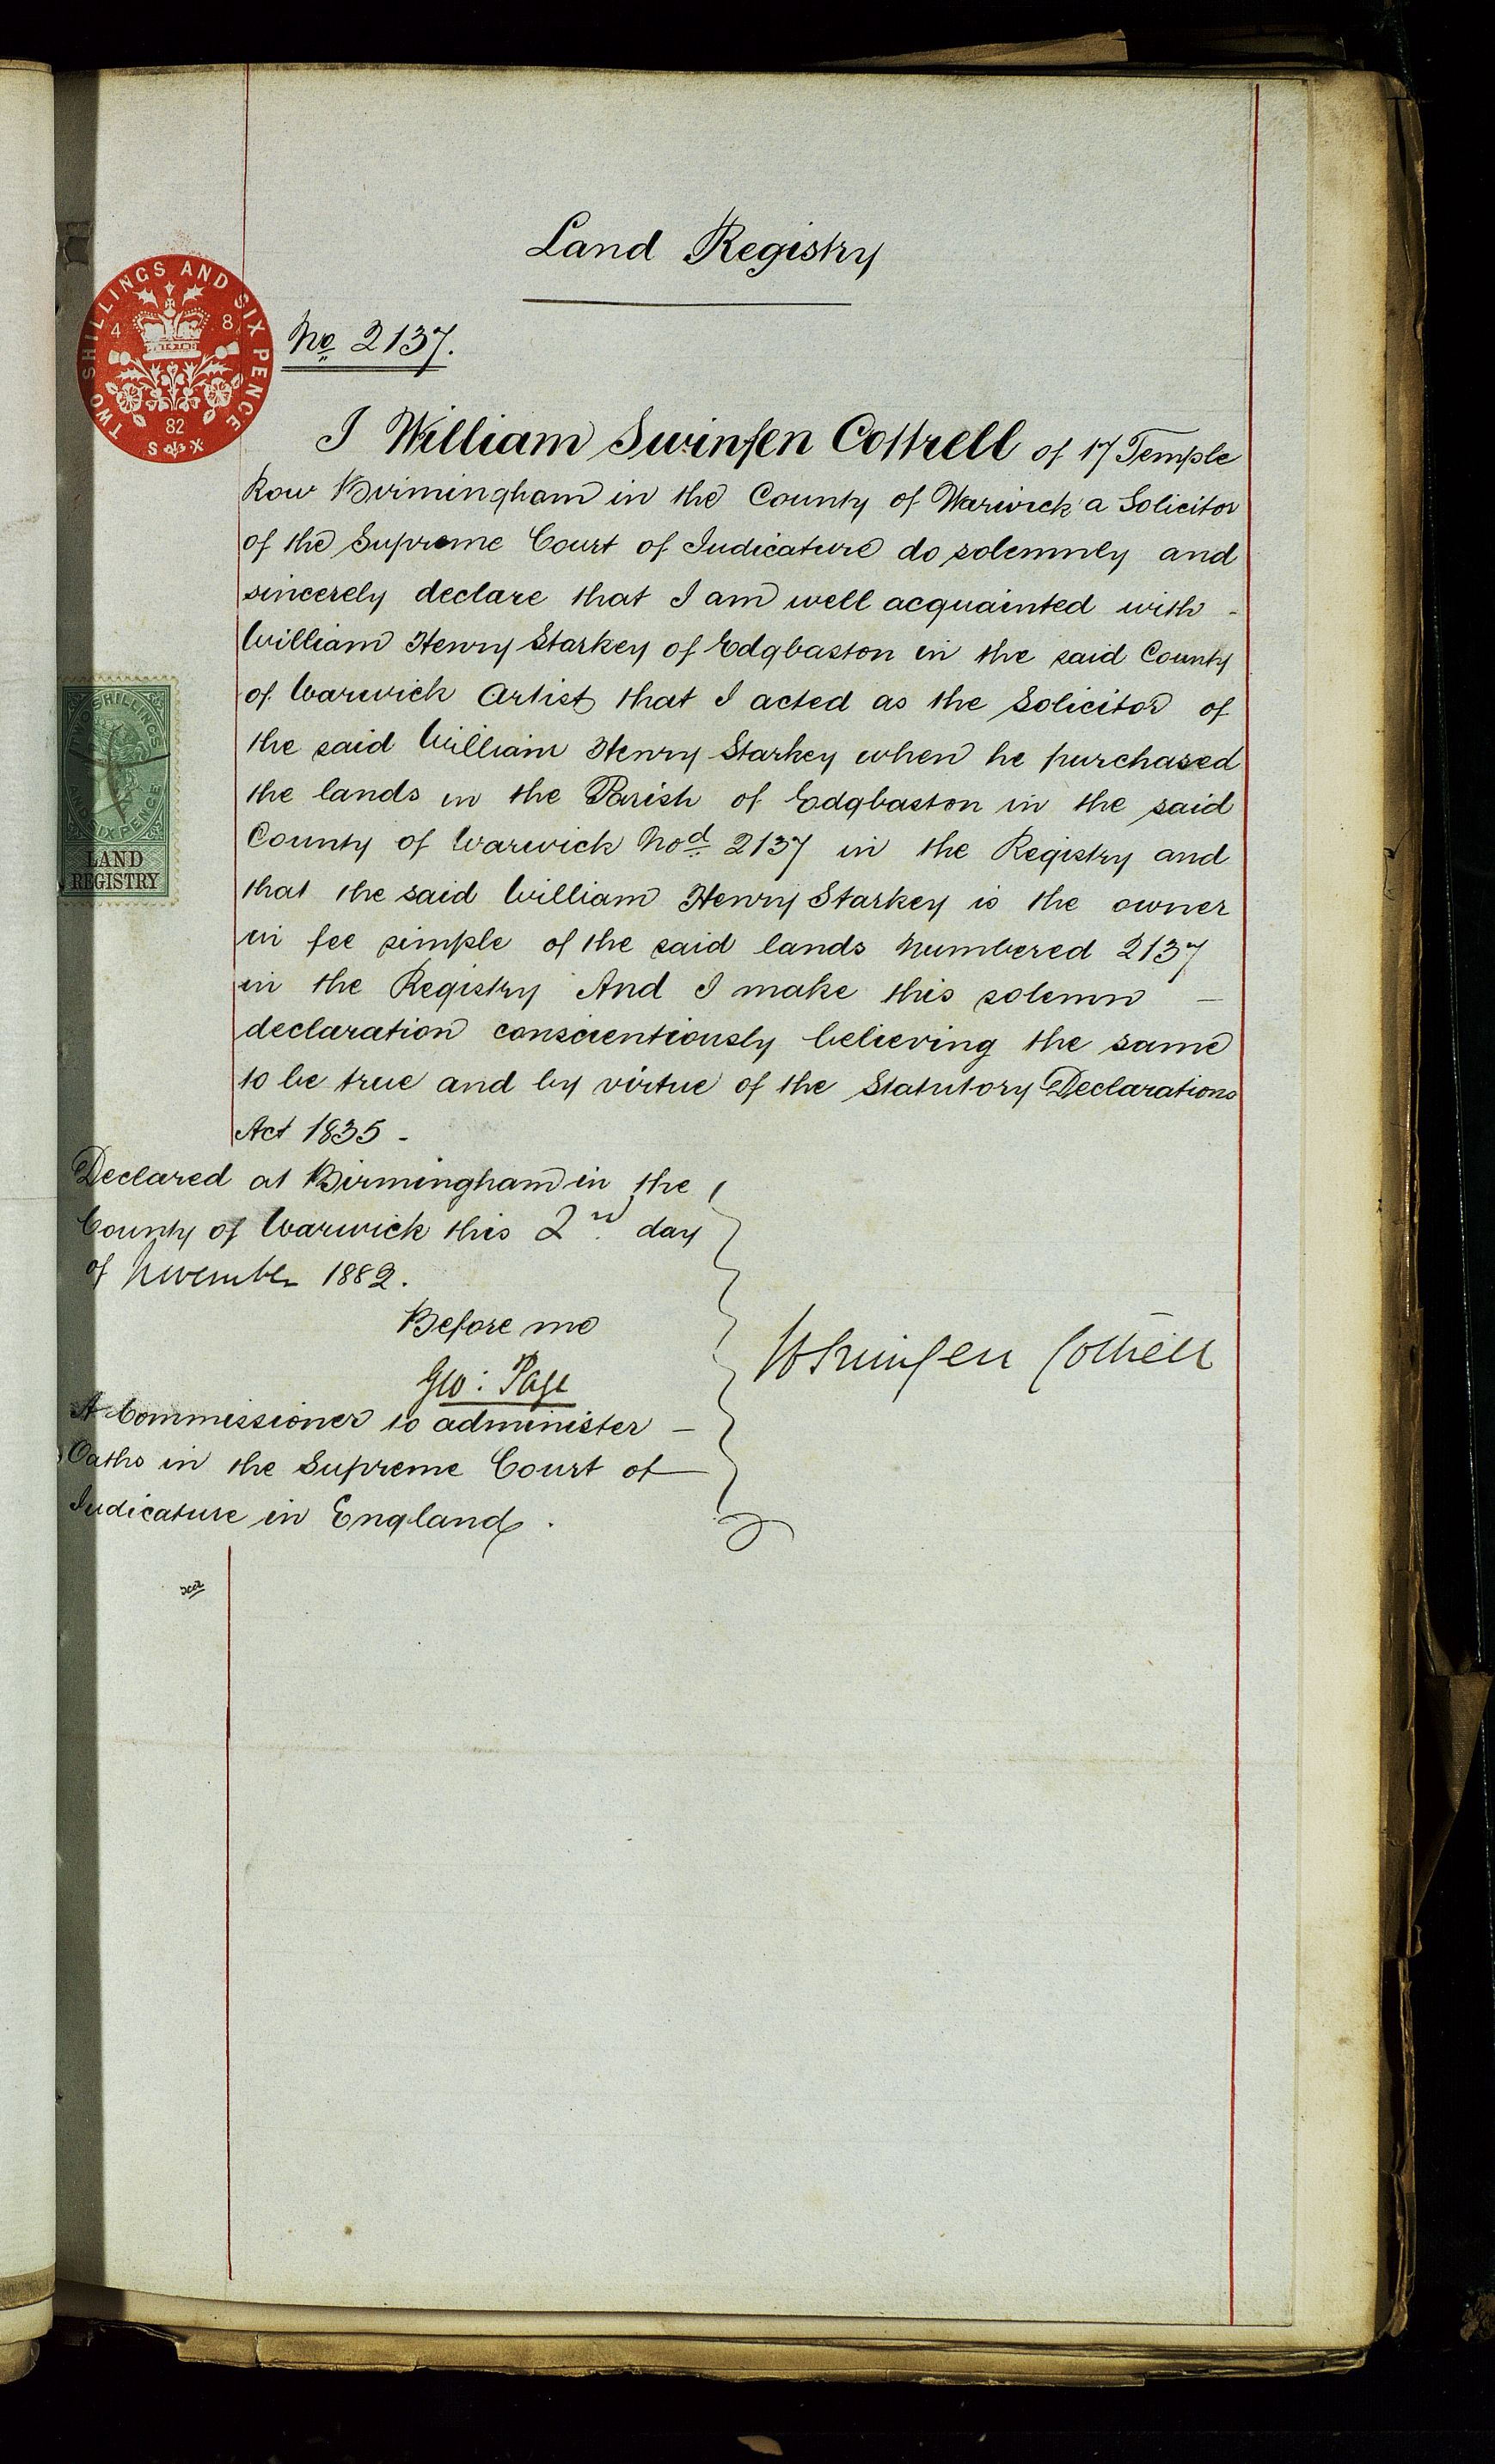 Land Registry
No 2137.
TWO SHILLINGS AND SIX PENCE
4 8
82
I William Swinfen Cottrell of 17 Temple
Row Birmingham in the County of Warwick a Solicitor
of the Supreme Court of Judicature do solemnly and
sincerely declare that I am well acquainted with -
William Henry Starkey of Edgbaston in the said County
of Warwick Artist that I acted as the Solicitor of
the said William Henry Starkey when he purchased
the lands in the Parish of Edgbaston in the said
County of Warwick Nod. 2137 in the Registry and
that the said William Henry Starkey is the owner
in fee simple of the said lands numbered 2137
in the Registry And I make this solemn —
declaration conscientiously believing the same
to be true and by virtue of the Statutory Declarations
Act 1835 -
TWO SHILLINGS
AND SIX PENCE
LAND
REGISTRY
Declared at Birmingham in the
County of Warwick this 2nd day
of November 1882.
Before me
Geo: Page
A Commissioner to administer —
Oaths in the Supreme Court of
Judicature in England.
W Swinfen Cottrell